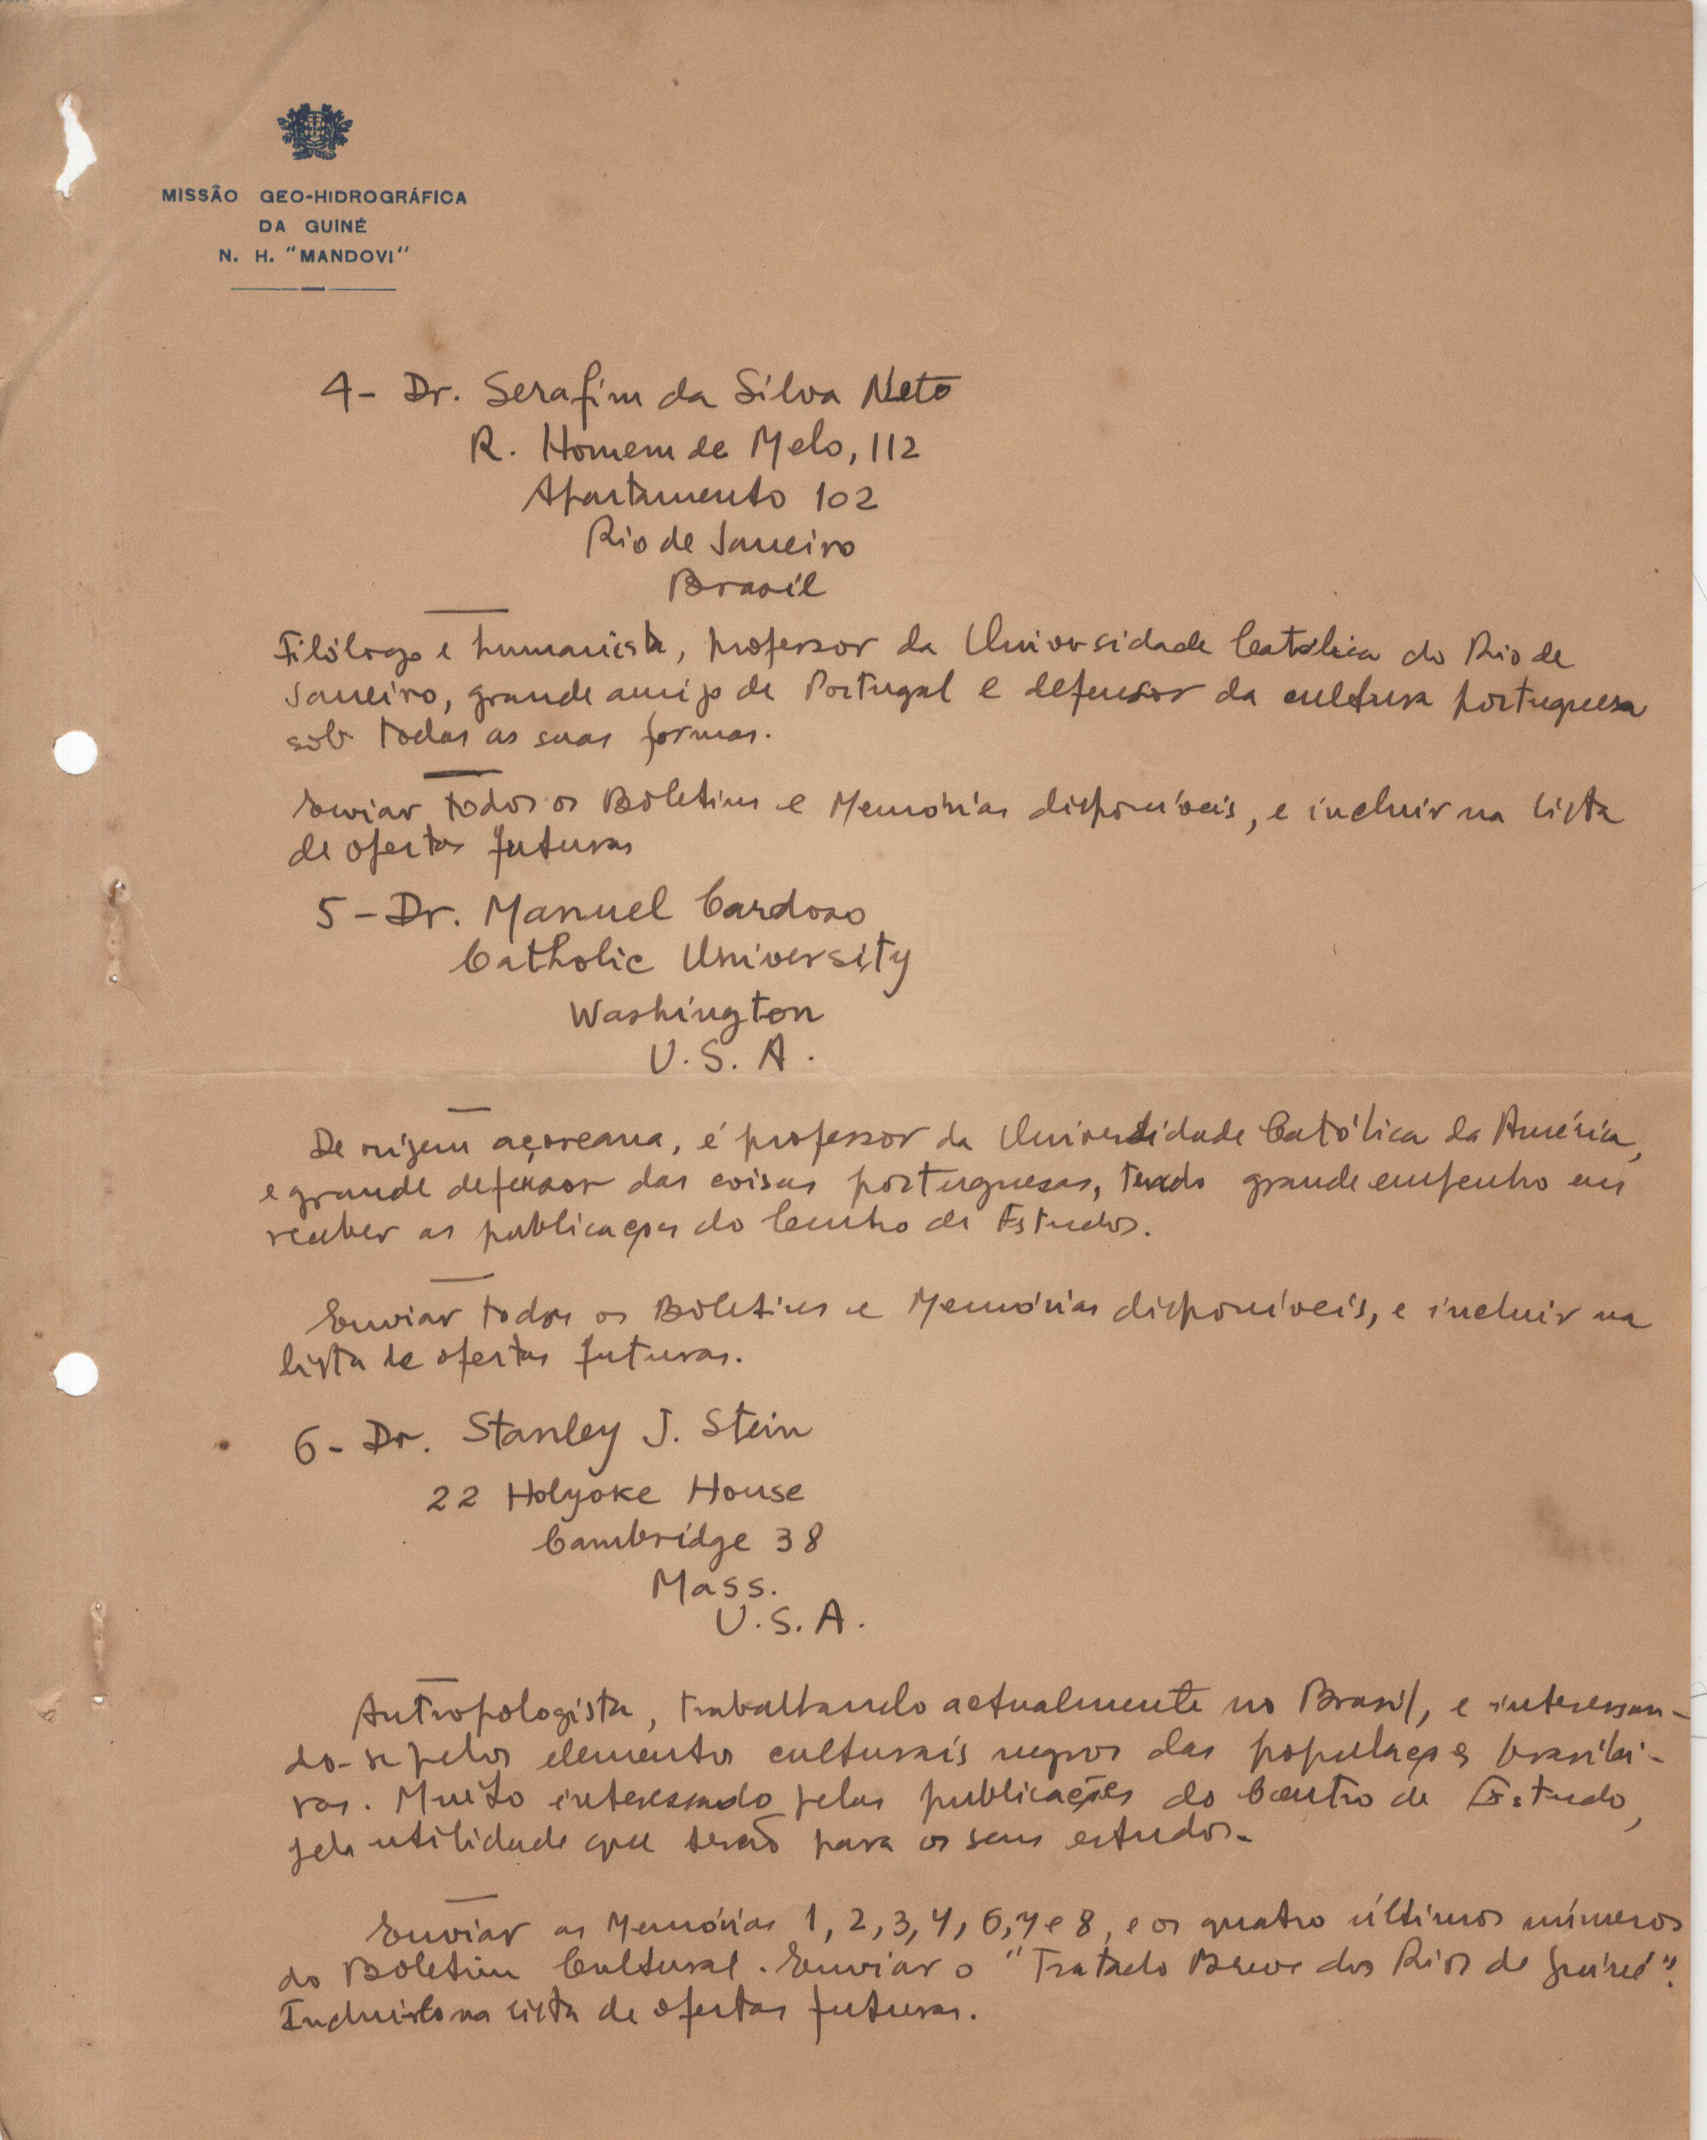 MISSÃO GEO-HIDROGRÁFICA
DA GUINÉ
N. H. "MANDOVI"
4- Dr. Serafim da Silva Neto
R. Homem de Melo, 112
Apartamento 102
Rio de Janeiro
Brasil
Filólogo e humanista, professor da Universidade Católica do Rio de
Janeiro, grande amigo de Portugal e defensor da cultura portuguesa
sob todas as suas formas.
Enviar todos os Boletins e Memórias disponíveis, e incluir na lista
de ofertas futuras
5- Dr. Manuel Cardoso
Catholic University
Washington
U. S. A.
De origem açoreana, é professor da Universidade Católica da América,
e grande defensor das coisas portuguesas, tendo grande empenho em
receber as publicações do Centro de Estudos.
Enviar todos os Boletins e Memórias disponíveis, e incluir na
lista de ofertas futuras.
6- Dr. Stanley J. Stein
22 Holyoke House
Cambridge 38
Mass.
U. S. A.
Antropologista, trabalhando actualmente no Brasil, e interessan-
do-se pelos elementos culturais negros das populações brasilei-
ras. Muito interessado pelas publicações do Centro de Estudo,
pela utilidade que terão para os seus estudos.
Enviar as Memórias 1, 2, 3, 4, 6, 7 e 8, e os quatro últimos números
do Boletim Cultural. Enviar o "Tratado Breve dos Rios de Guiné".
Incluí-lo na lista de ofertas futuras.